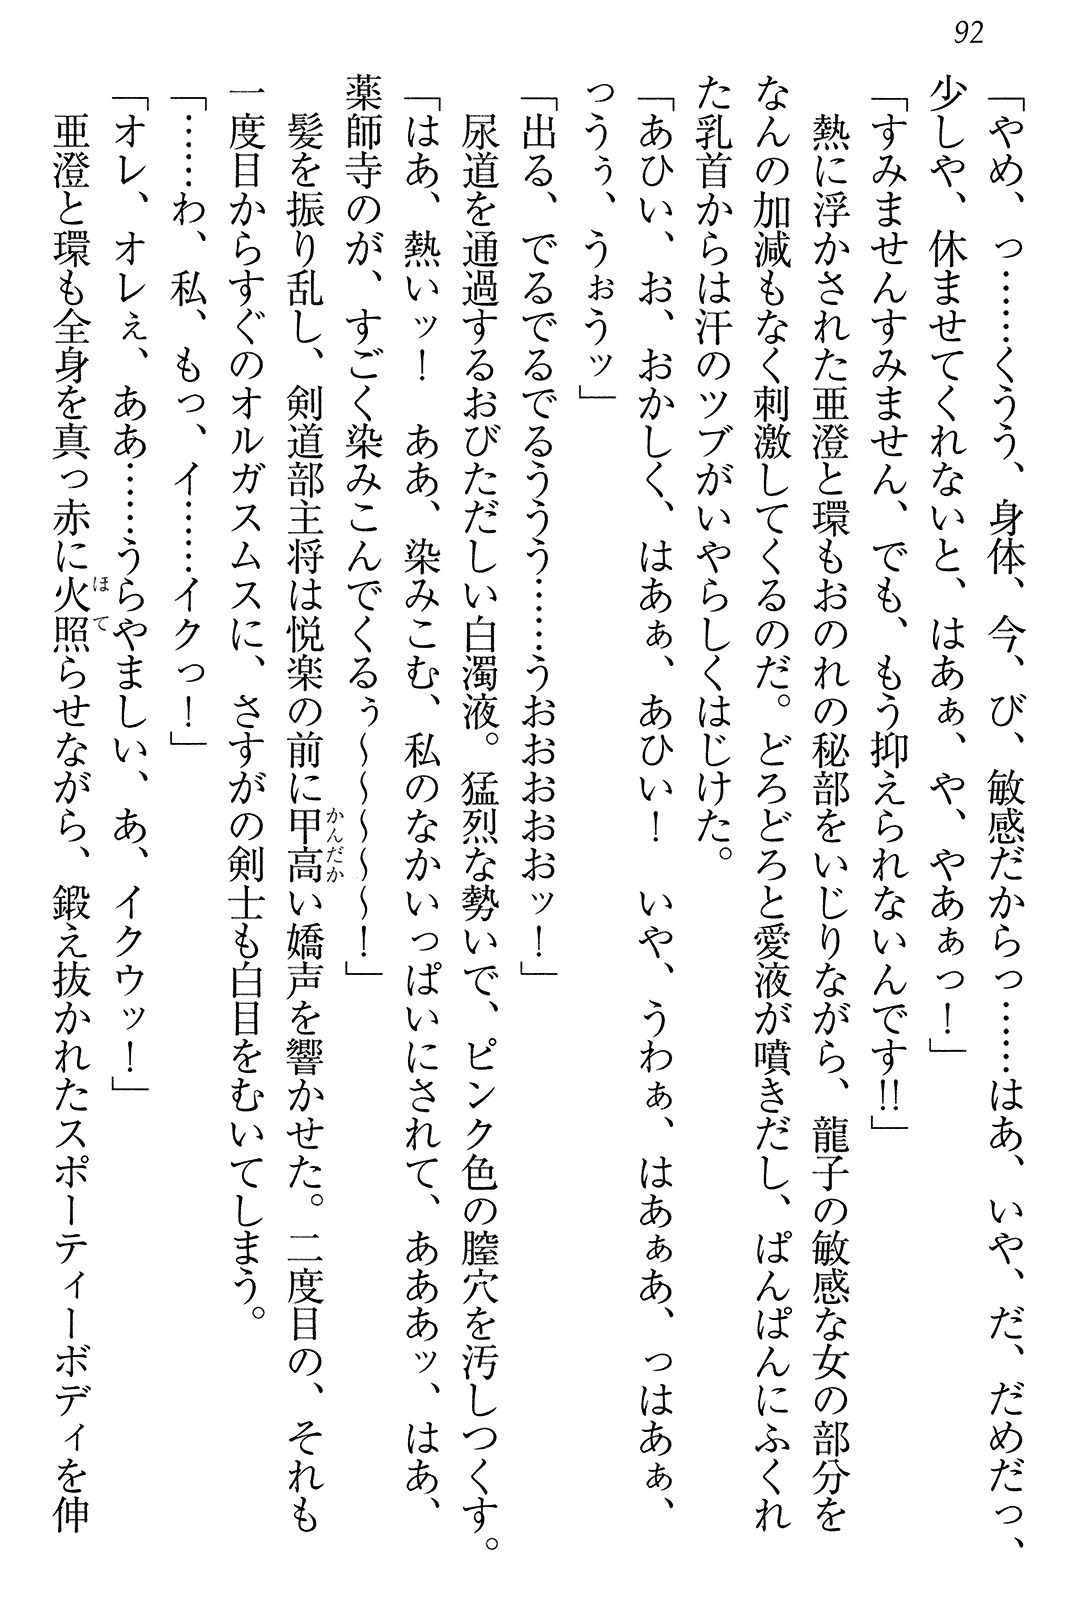 92
「やめ、っ……くうう、身体、今、び、敏感だからっ……はあ、いや、だ、だめだっ、
少しや、休ませてくれないと、はあぁ、や、やあぁっ！」
「すみませんすみません、でも、もう抑えられないんです!!」
熱に浮かされた亜澄と環もおのれの秘部をいじりながら、龍子の敏感な女の部分を
なんの加減もなく刺激してくるのだ。どろどろと愛液が噴きだし、ぱんぱんにふくれ
た乳首からは汗のツブがいやらしくはじけた。
「あひい、お、おかしく、はあぁ、あひい！　いや、うわぁ、はあぁあ、っはあぁ、
っうぅ、うぉうッ」
「出る、でるでるでるううう……うおおおおおッ！」
尿道を通過するおびただしい白濁液。猛烈な勢いで、ピンク色の膣穴を汚しつくす。
「はあ、熱いッ！　ああ、染みこむ、私のなかいっぱいにされて、あああッ、はあ、
薬師寺のが、すごく染みこんでくるぅ～～～～～！」
髪を振り乱し、剣道部主将は悦楽の前に甲高い嬌声を響かせた。二度目の、それも
一度目からすぐのオルガスムスに、さすがの剣士も白目をむいてしまう。
「……わ、私、もっ、イ……イクっ！」
「オレ、オレぇ、ああ……うらやましい、あ、イクウッ！」
亜澄と環も全身を真っ赤に火照らせながら、鍛え抜かれたスポーティーボディを伸